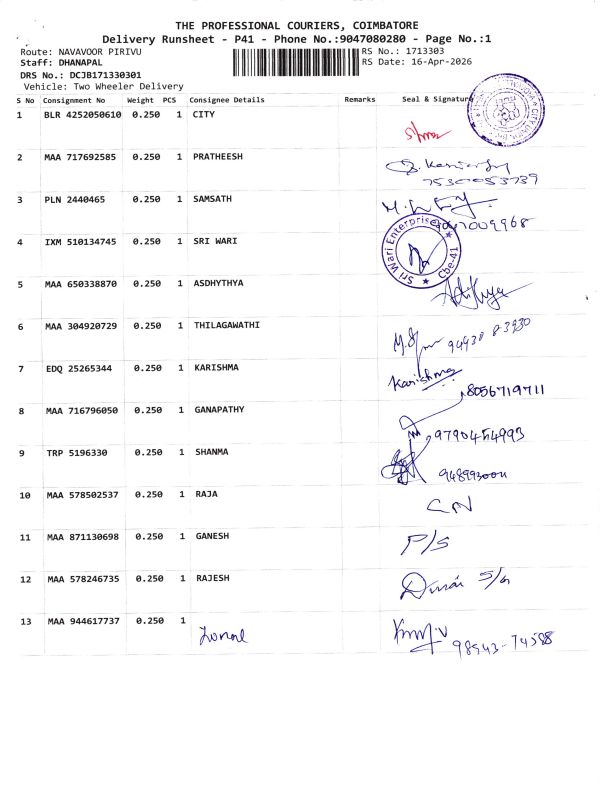 THE PROFESSIONAL COURIERS, COIMBATORE
Delivery Runsheet - P41 - Phone No.:9047080280 - Page No.:1
Route: NAVAVOOR PIRIVU RS No.: 1713303
Staff: DHANAPAL RS Date: 16-Apr-2026
DRS No.: DCJB171330301
Vehicle: Two Wheeler Delivery
S No Consignment No Weight PCS Consignee Details Remarks Seal & Signature
1 BLR 4252050610 0.250 1 CITY
2 MAA 717692585 0.250 1 PRATHEESH
7530053739
3 PLN 2440465 0.250 1 SAMSATH
4 IXM 510134745 0.250 1 SRI WARI
Sri Wari Enterprises Cbe-41
5 MAA 650338870 0.250 1 ASDHYTHYA
6 MAA 304920729 0.250 1 THILAGAWATHI
94938 83930
7 EDQ 25265344 0.250 1 KARISHMA Karishma
8056719711
8 MAA 716796050 0.250 1 GANAPATHY
9790454993
9 TRP 5196330 0.250 1 SHANMA
10 MAA 578502537 0.250 1 RAJA CN
11 MAA 871130698 0.250 1 GANESH P/S
12 MAA 578246735 0.250 1 RAJESH S/o
13 MAA 944617737 0.250 1
98943-74588